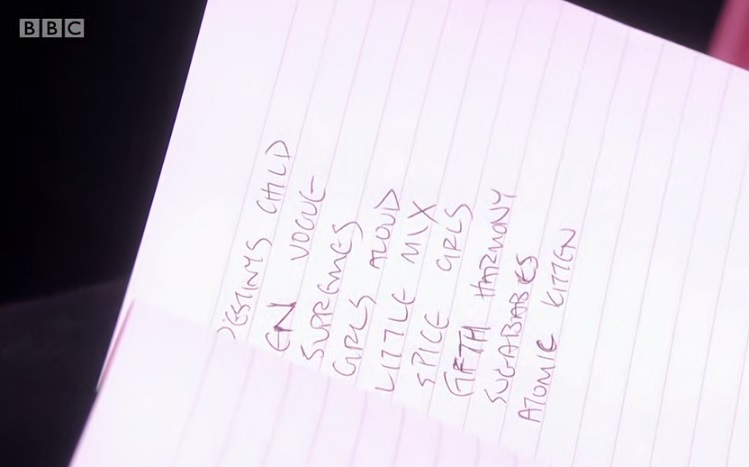 BBC
DESTINYS CHILD
EN VOGUE
SUPREMES
GIRLS ALOUD
LITTLE MIX
SPICE GIRLS
FIFTH HARMONY
SUGABABES
ATOMIC KITTEN